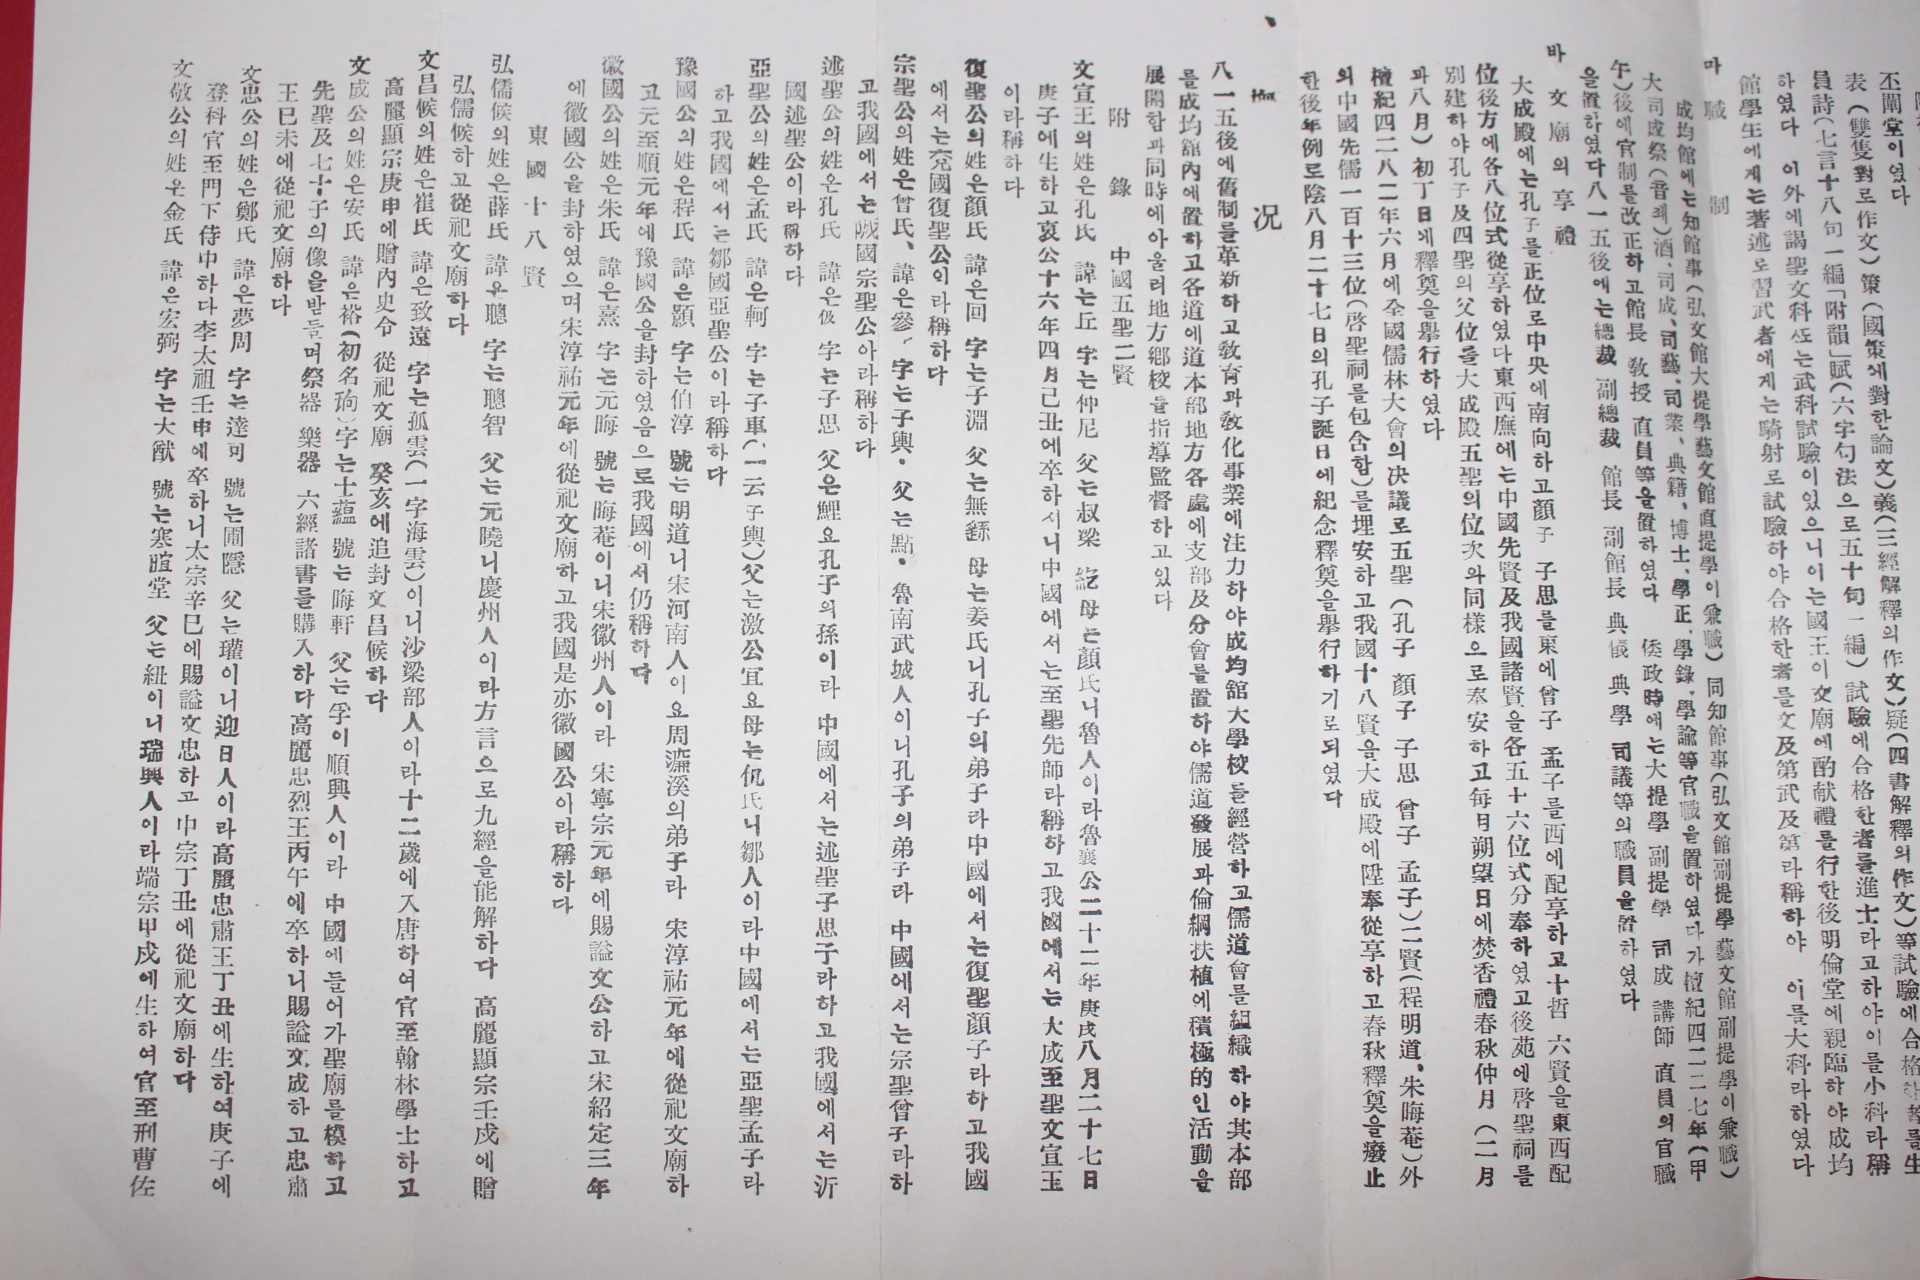 丕闡堂이였다
表(雙雙對로作文)策(國策에對한論文)義(三經解釋의作文)疑(四書解釋의作文)等試驗에合格한
員詩(七言十八句一編「附韻」賦(六字句法으로五十句一編)試驗에合格한者를進士라고하야이를小科라稱
하였다 이外에謁聖文科또는武科試驗이있으니이는國王이文廟에酌献禮를行한後明倫堂에親臨하야成均
館學生에게는著述로習武者에게는騎射로試驗하야合格한者를文及第武及第라稱하야 이를大科라하였다
마 職 制
成均館에는知館事(弘文館大提學藝文館直提學이兼職)同知館事(弘文館副提學藝文館副提學이兼職)
大司成祭(音쇄)酒、司成、司藝、司業、典籍、博士、學正、學錄、學諭等官職을置하였다가檀紀四二二七年(甲
午)後에官制를改正하고館長 敎授 直員等을置하였다 倭政時에는大提學 副提學 司成 講師 直員의官職
을置하였다八一五後에는總裁 副總裁 館長 副館長 典儀 典學 司議等의職員을置하였다
바 文廟의享禮
大成殿에는孔子를正位로中央에南向하고顔子 子思를東에曾子 孟子를西에配享하고十哲 六賢을東西配
位後方에各八位式從享하였다東西廡에는中國先賢及我國諸賢을各五十六位式分奉하였고後苑에啓聖祠를
別建하야孔子及四聖의父位를大成殿五聖의位次와同樣으로奉安하고每月朔望日에焚香禮春秋仲月(二月
과八月)初丁日에釋奠을擧行하였다
檀紀四二八二年六月에全國儒林大會의決議로五聖(孔子 顔子 子思 曾子 孟子)二賢(程明道、朱晦菴)外
의中國先儒一百十三位(啓聖祠를包含함)를埋安하고我國十八賢을大成殿에陞奉從享하고春秋釋奠을廢止
한後年例로陰八月二十七日의孔子誕日에紀念釋奠을擧行하기로되였다
概 况
八一五後에舊制를革新하고敎育과敎化事業에注力하야成均舘大學校를經營하고儒道會를組織하야其本部
를成均舘內에置하고各道에道本部地方各處에支部及分會를置하야儒道發展과倫綱扶植에積極的인活動을
展開함과同時에아울러地方鄕校를指導監督하고있다
附 錄 中國五聖二賢
文宣王의姓은孔氏 諱는丘 字는仲尼 父는叔梁紇 母는顔氏니魯人이라魯襄公二十二年庚戌八月二十七日
庚子에生하고哀公十六年四月己丑에卒하시니中國에서는至聖先師라稱하고我國에서는大成至聖文宣王
이라稱하다
復聖公의姓은顔氏 諱은回 字는子淵 父는無繇 母는姜氏니孔子의弟子라中國에서는復聖顔子라하고我國
에서는兗國復聖公이라稱하다
宗聖公의姓은曾氏、諱은參、字는子輿·父는點·魯南武城人이니孔子의弟子라 中國에서는宗聖曾子라하
고我國에서는郕國宗聖公아라稱하다
述聖公의姓은孔氏 諱은伋 字는子思 父은鯉요孔子의孫이라 中國에서는述聖子思子라하고我國에서는沂
國述聖公이라稱하다
亞聖公의姓은孟氏 諱은軻 字는子車(一云子輿)父는激公宜요母는仉氏니鄒人이라中國에서는亞聖孟子라
하고我國에서는鄒國亞聖公이라稱하다
豫國公의姓은程氏 諱은顥 字는伯淳 號는明道니宋河南人이요周濂溪의弟子라 宋淳祐元年에從祀文廟하
고元至順元年에豫國公을封하였음으로我國에서仍稱하다
徽國公의姓은朱氏 諱은熹 字는元晦 號는晦菴이니宋徽州人이라 宋寧宗元年에賜謚文公하고宋紹定三年
에徽國公을封하였으며宋淳祐元年에從祀文廟하고我國是亦徽國公이라稱하다
東國十八賢
弘儒候의姓은薛氏 諱은聰 字는聰智 父는元曉니慶州人이라方言으로九經을能解하다 高麗顯宗壬戌에贈
弘儒候하고從祀文廟하다
文昌候의姓은崔氏 諱은致遠 字는孤雲(一字海雲)이니沙梁部人이라十二歲에入唐하여官至翰林學士하고
高麗顯宗庚申에贈內史令 從祀文廟 癸亥에追封文昌候하다
文成公의姓은安氏 諱은裕(初名珦)字는士蘊 號는晦軒 父는孚이順興人이라 中國에들어가聖廟를模하고
先聖及七十子의像을받들며祭器 樂器 六經諸書를購入하다高麗忠烈王丙午에卒하니賜謚文成하고忠肅
王巳未에從祀文廟하다
文忠公의姓은鄭氏 諱은夢周 字는達可 號는圃隱 父는瓘이니迎日人이라高麗忠肅王丁丑에生하여庚子에
登科官至門下侍中하다李太祖壬申에卒하니太宗辛巳에賜謚文忠하고中宗丁丑에從祀文廟하다
文敬公의姓은金氏 諱은宏弼 字는大猷 號는寒暄堂 父는紐이니瑞興人이라端宗甲戌에生하여官至刑曹佐